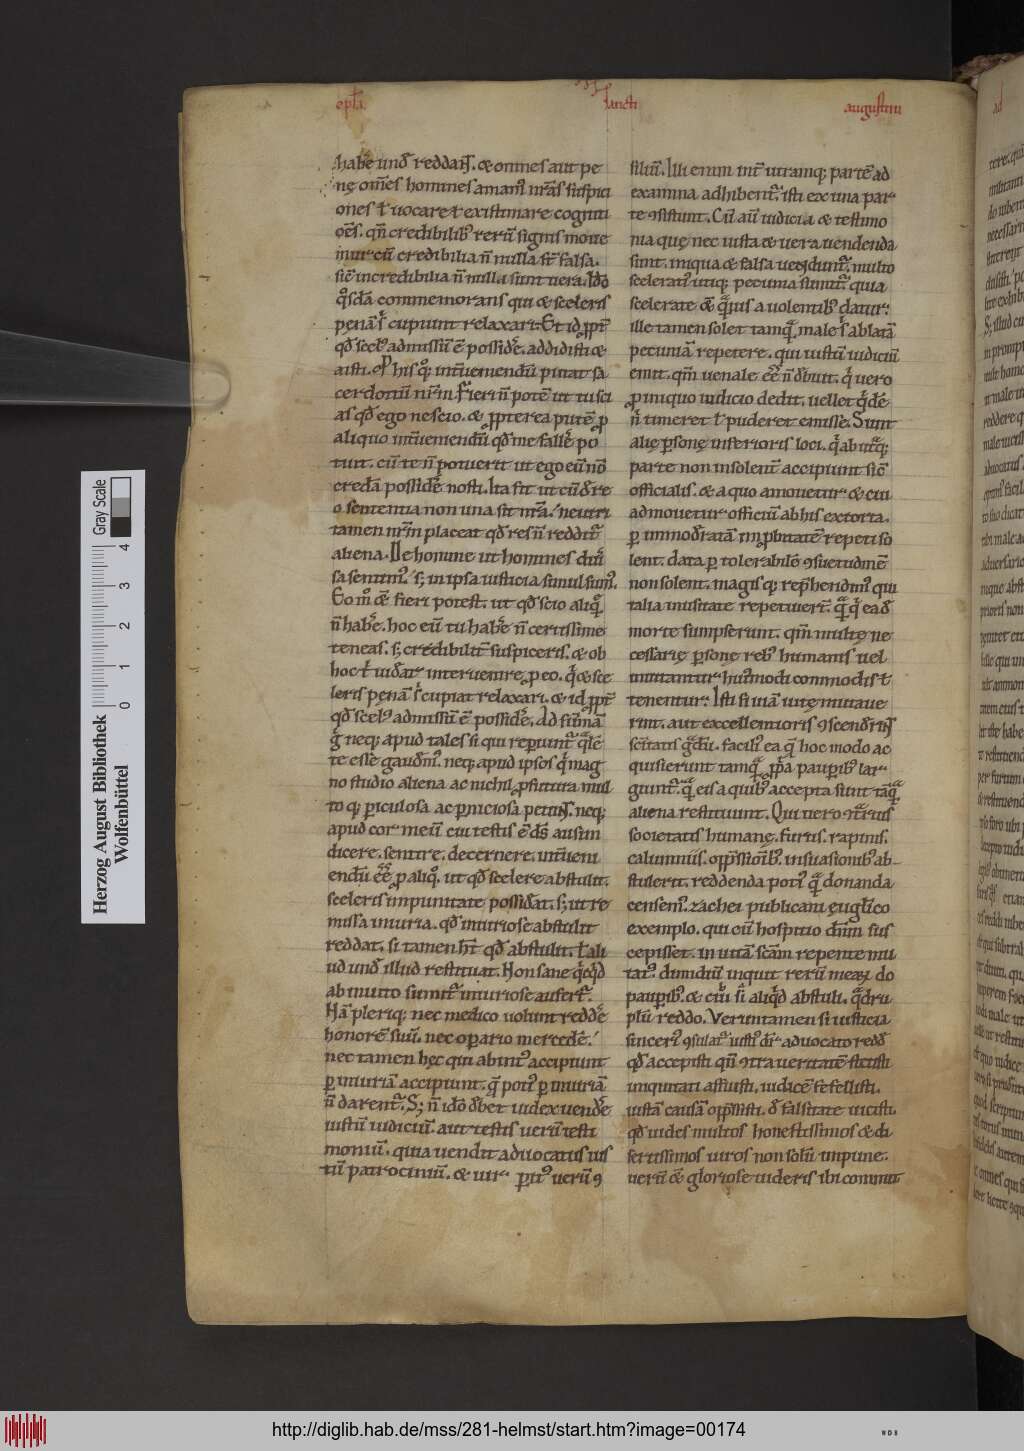 opl̄a
sancti
augustini
habe und̄ reddat. & omnes aut pe
nę oms̄ homines amant̄ nr̄as suspici
ones ł uocare ł existimare cogniti
ōes. qn̄ credibilib; rerū signis moue
mur cū credibilia n̄ nulla st̄ falsa.
sic̄ incredibilia n̄ nulla sunt uera. Ido
q̊sdā commemorans qui & sceleris
penā s' cupiunt relaxari. Et id ꝓpt̄
qd̄ scel; admissū ē possidē. addidisti &
aisti. Pro his quoq; int̄ueniendū putat sa
cerdotiū nr̄m. Fieri n̄ potē ut tu sci
as qd̄ ego nescio. & ꝓpterea putē ꝓ
aliquo int̄ueniendū qd̄ me fallē po
tuit. cū te n̄ potuerit ut ego eū nō
credā possidē nosti. Ita fit ut cū d̄ re
o sententia non una sit nr̄a. neutri
tamen nr̄m placeat qd̄ res n̄ reddit̄
aliena. De homine ut homines diū
sa sentim;. s; in ipsa iusticia simul sum;.
Eo m̊ & fieri potest. ut qd̄ scio aliq̄
n̄ habē. hoc eū tu habē n̄ certissime
teneas. s; credibilit̄ suspiceris. & ob
hoc t' uidear interuenire ꝓ eo. q' & sce
leris penā s' cupiat relaxari. & id ꝓpt̄
qd̄ scel; admissū ē possidē. Ad sūmā
g' neq; apud tales si qui reperiunt̄ q̄lē
te esse gaudm;. neq; apud ipsos q' mag
no studio aliena ac nichil ꝓfutura mul
to q; periculosa ac pniciosa petunt. neq;
apud cor meū cui testis ē ds̄ ausim
dicere. sentire. decernere. int̄ueni
endū eē ꝓ aliq̊. ut qd̄ scelere abstulit.
sceleris impunitate possideat. s; ut re
missa iniuria. qd̄ iniuriose abstulit
reddat. si tamen ht̄ qd̄ abstulit. ł ali
ud und̄ illud restituat. Non sane q'cq'd
ab inuito sumit̄ iniuriose aufert̄.
Nā pleriq; nec medico uolunt reddē
honorē suū. nec operario mercedē.
nec tamen hęc qui ab inuit; accipiunt
ꝑ iniuriā accipiunt. q̄ poti; ꝑ iniuriā
n̄ darent̄. S; n̄ idō debet iudex uendē
iustū iudiciū. aut testis uerū testi
moniū. quia uendit aduocatus ius
tū patrociniū. & uir perit; uerū 9
siliū. Illi enim int̄ utramq; partē ad
examina adhibent̄. isti ex una par
te 9sistunt. Cū aū iudicia & testimo
nia quę nec iusta & uera uendenda
sunt. iniqua & falsa uendunt̄. multo
scelerati; utiq; pecunia sumit̄. quia
scelerate &̄ q̄uis a uolentib; datur.
ille tamen solet tamq̄ male s' ablatā
pecuniā repetere. qui iustū iudiciū
emit. qm̄ uenale eē n̄ debuit. q' uero
ꝓ iniquo iudicio dedit. uellet q'dē
n' timeret ł puderet emisse. Sunt
alię personę inferioris loci. q' ab utq̄;
parte non insolent̄ accipiunt sic̄
officialis. & a quo amouetur & cui
admouetur officiū. ab his extorta.
ꝑ inmoderatā inꝓbitatē repeti so
lent. data ꝑ tolerabilē 9suetudinē
non solent. magisq; rep̄hendim; qui
talia inusitate repetiuert̄. q̄ q' ea d̄
morte sumpserunt. qm̄ multę ne
cessarię personę reb; humanis uel
inuitantur hui;modi commodis ł
tenentur. Isti si uiā uitę mutaue
rint. aut excellentioris 9scenderint
sc̄itatis gradū. facili; ea q' hoc modo ac
quisierunt tamq̄ ꝓp̄a pauperib; lar
giunt̄. q̄ eis a quib; accepta sunt tāq̄
aliena restituunt. Qui uero 9tra ius
societatis humanę. furtis. rapinis.
calumniis. opp̄ssionib;. inuasionib; ab
stulerit. reddenda poti; q̄ donanda
censem;. zachei publicani euglico
exemplo. qui cū hospitio dn̄m sus
cepisset. in uitā sc̄am repente mu
tat;. dimidiū inquit rerū mearꝝ do
pauperib;. & cui si aliq'd abstuli. q̄dru
plū reddo. Veruntamen si iusticia
sinceri; 9sulat̄. iusti; dr̄ aduocato redd̄
qd̄ accepisti qn̄ 9tra ueritatē stetisti
iniquitati affuisti. iudicē fefellisti.
iustā causā opp̄ssisti. d̄ falsitate uicisti.
qd̄ uides multos honestissimos & di
sertissimos uiros non solū impune.
uerū &̄ gloriose uideris ibi committ
Herzog August Bibliothek
Wolfenbüttel
0 1 2 3 4
Gray Scale
http://diglib.hab.de/mss/281-helmst/start.htm?image=00174